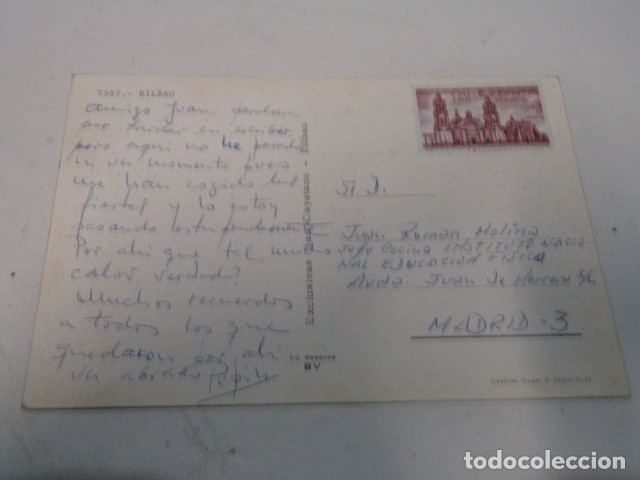 7387.- BILBAO
Amigo Juan, perdona
por tardar en escribir
pero aqui no he parado
ni un momento pues
me han cogido las
fiestas y lo estoy
pasando estupendamente
Por ahi que tal, mucho
calor verdad?
Muchos recuerdos
a todos los que
quedaron por ahi
un abrazo Pepin
Bilbao
BV
ESPAÑA
Sr. D.
Juan Ramon Molina
Jefe Cocina INSTITUTO NACIO-
NAL EDUCACION FISICA
Avda. Juan de Herrera S/n
MADRID-3
todocoleccion.net